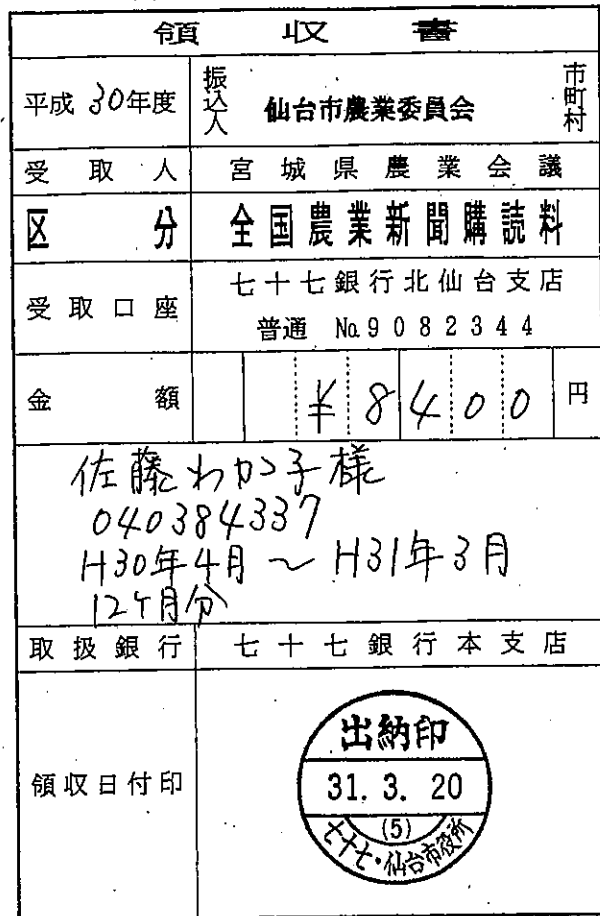 領収書
平成 30年度 振込人 仙台市農業委員会 市町村
受取人 宮城県農業会議
区分 全国農業新聞購読料
受取口座 七十七銀行北仙台支店
普通 No.9082344
金額 ¥8400 円
佐藤わか子様
040384337
H30年4月～H31年3月
12ヶ月分
取扱銀行 七十七銀行本支店
領収日付印 出納印
31. 3. 20
(5)
七十七・仙台市役所